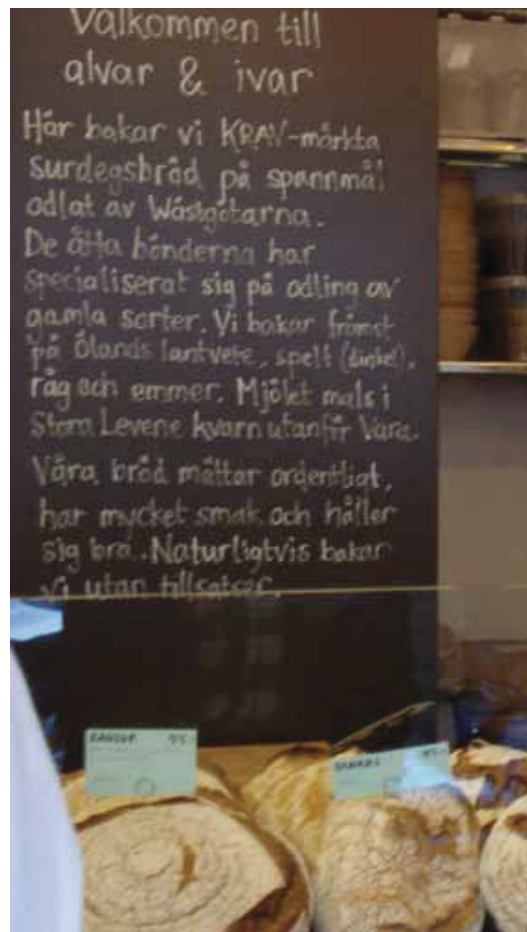 Välkommen till
alvar & ivar
Här bakar vi KRAV-märkta
surdegsbröd på spannmål
odlat av Wästgötarna.
De åtta bönderna har
specialiserat sig på odling av
gamla sorter. Vi bakar främst
på Ölands lantvete, spelt (dinkel),
råg och emmer. Mjölet mals i
Stora Levene kvarn utanför Vara.
Våra bröd mättar ordentligt,
har mycket smak och håller
sig bra. Naturligtvis bakar
vi utan tillsatser.